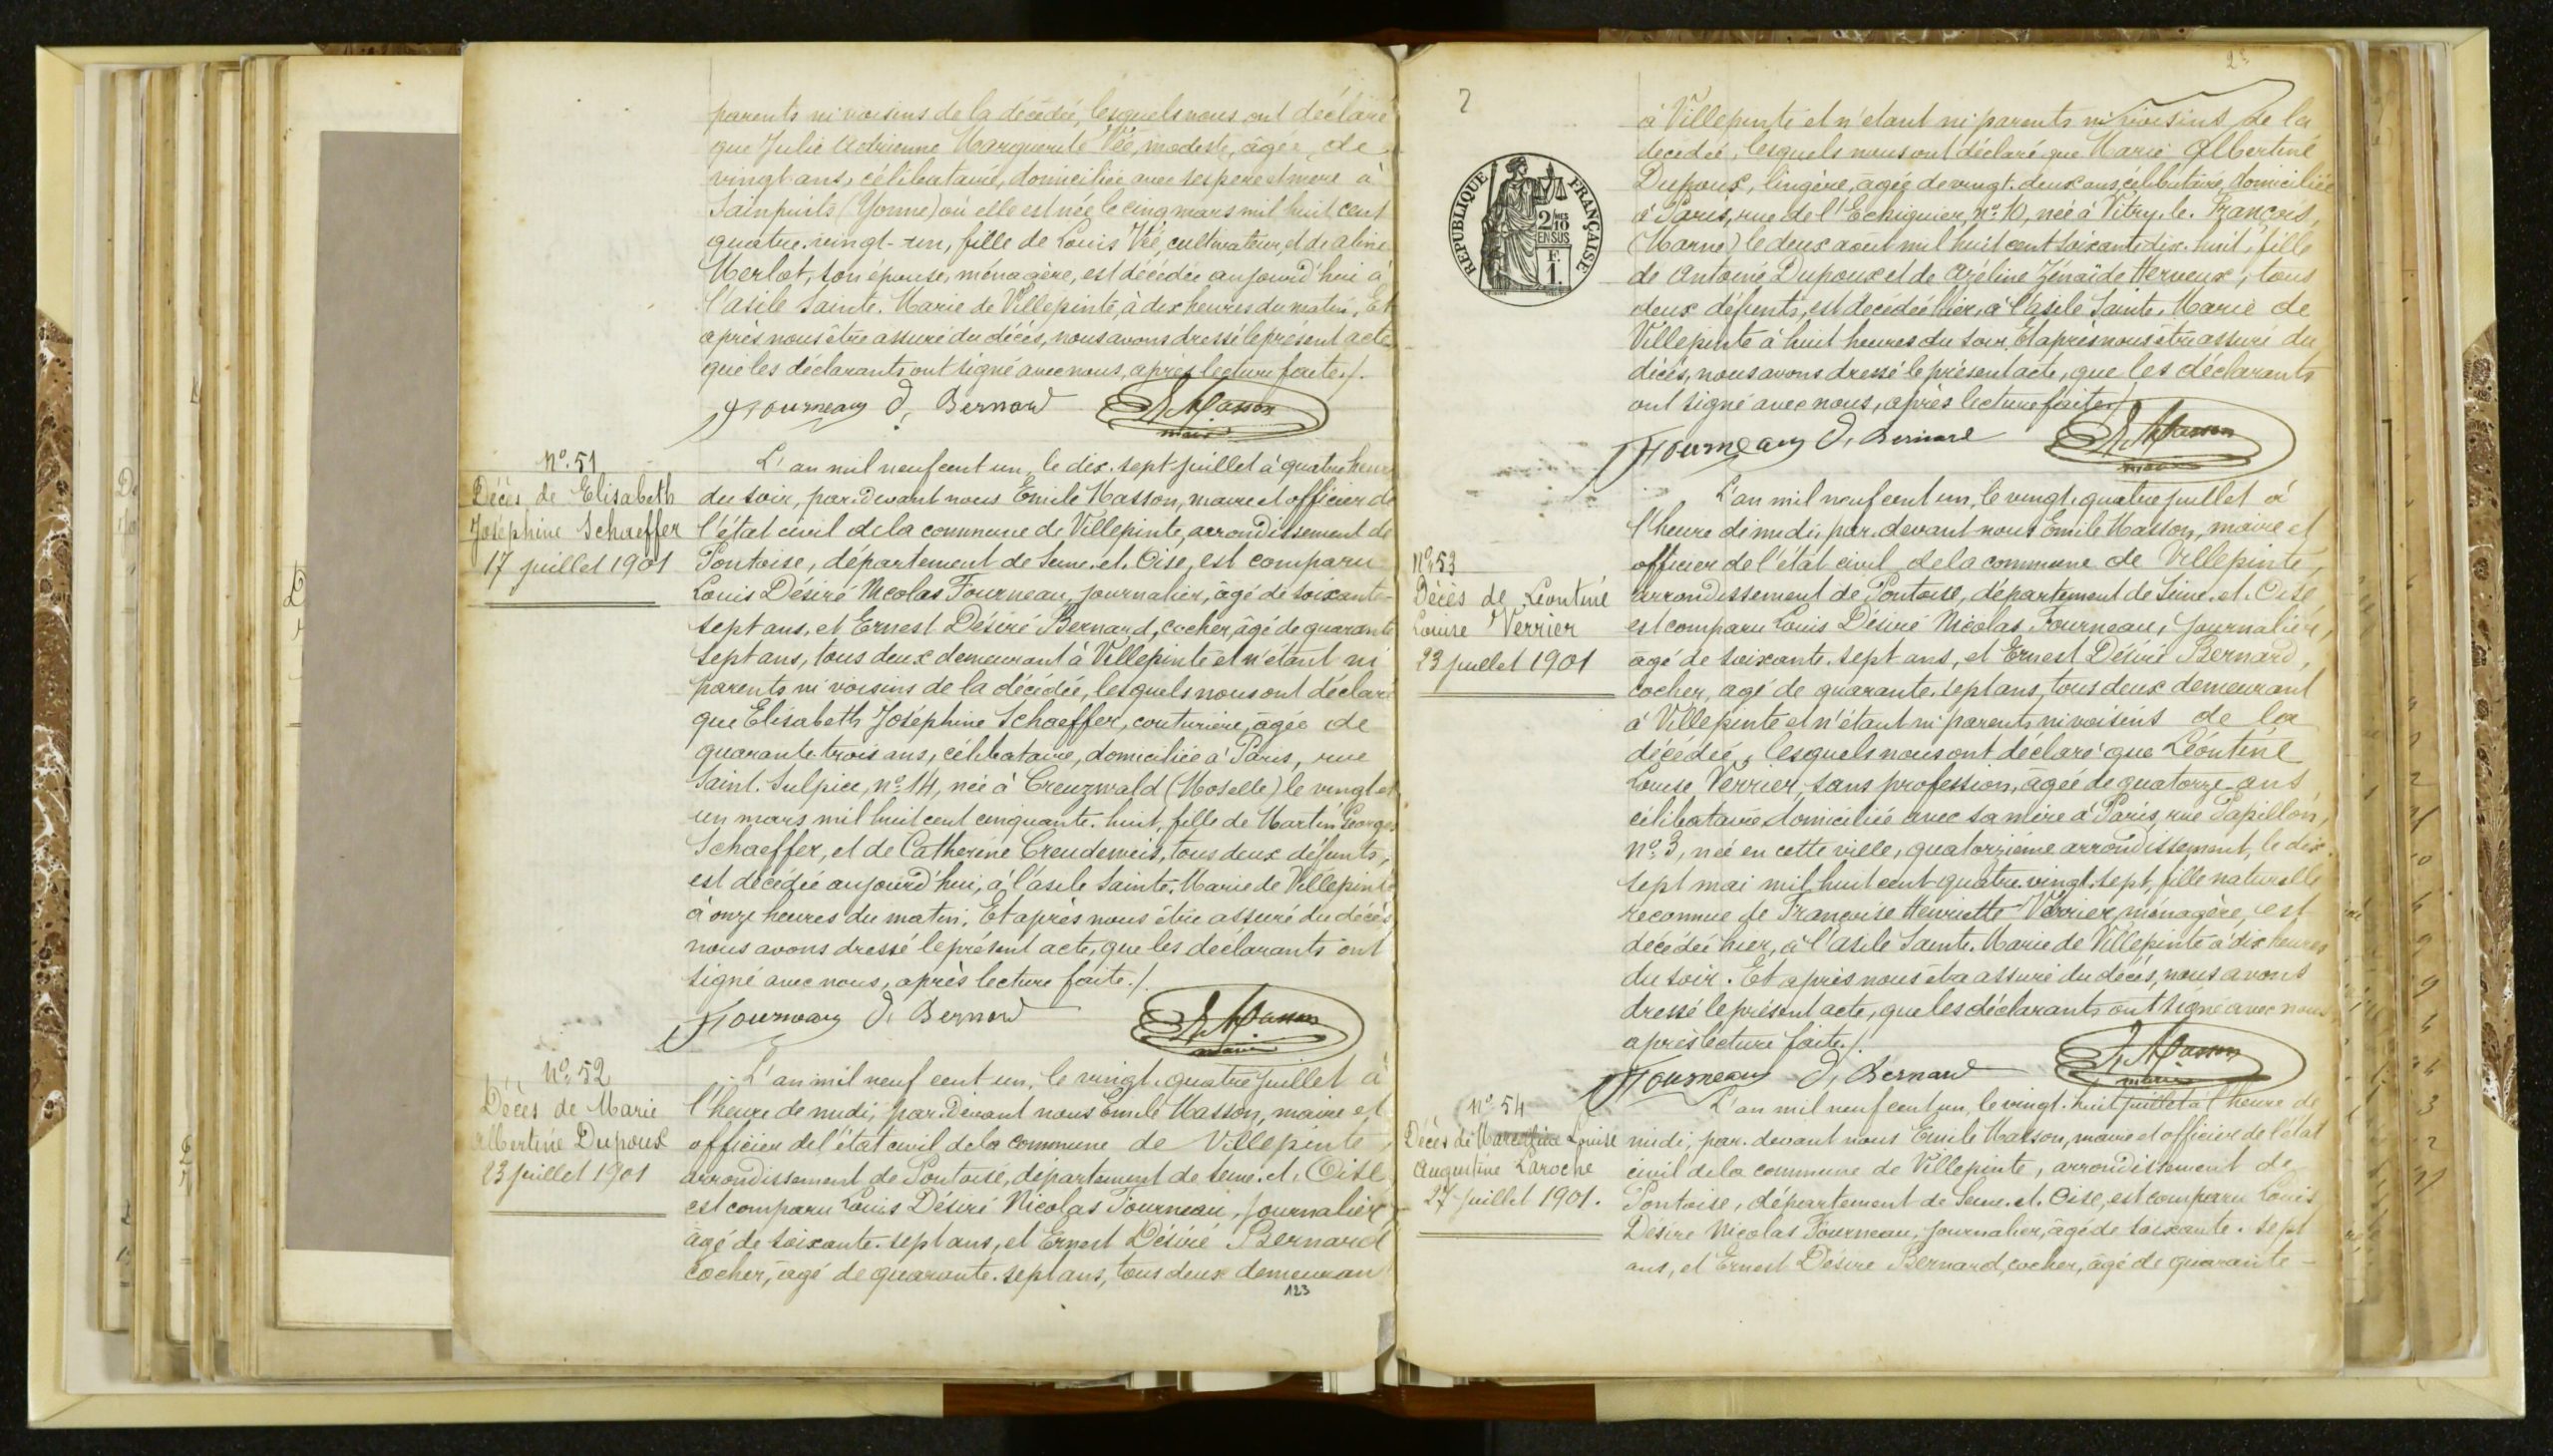 parents ni voisins de la décédée, lesquels nous ont déclaré
que Julie Adrienne Marguerite Vée, modeste, âgée de
vingt ans, célibataire, domiciliée avec ses père et mère à
Sainpuits (Yonne) où elle est née le cinq mars mil huit cent
quatre-vingt-un, fille de Louis Vée, cultivateur, et de Aline
Merlot, son épouse, ménagère, est décédée aujourd'hui à
l'asile Sainte-Marie de Villepinte, à dix heures du matin. Et
après nous être assuré du décès, nous avons dressé le présent acte
que les déclarants ont signé avec nous, après lecture faite./.
Fourneau D. Bernard E. Masson
maire
N° 51
Décès de Elisabeth
Joséphine Schaeffer
17 juillet 1901
L'an mil neuf cent un, le dix-sept juillet à quatre heures
du soir, par-devant nous Emile Masson, maire et officier de
l'état civil de la commune de Villepinte, arrondissement de
Pontoise, département de Seine-et-Oise, est comparu
Louis Désiré Nicolas Fourneau, journalier, âgé de soixante-
sept ans, et Ernest Désiré Bernard, cocher, âgé de quarante
sept ans, tous deux demeurant à Villepinte et n'étant ni
parents ni voisins de la décédée, lesquels nous ont déclaré
que Elisabeth Joséphine Schaeffer, couturière, âgée de
quarante-trois ans, célibataire, domiciliée à Paris, rue
Saint-Sulpice, n° 14, née à Creuzwald (Moselle) le vingt et
un mars mil huit cent cinquante-huit, fille de Martin Georges
Schaeffer, et de Catherine Creudeweis, tous deux défunts,
est décédée aujourd'hui, à l'asile Sainte-Marie de Villepinte
à onze heures du matin. Et après nous être assuré du décès,
nous avons dressé le présent acte, que les déclarants ont
signé avec nous, après lecture faite./.
Fourneau D. Bernard E. Masson
maire
N° 52
Décès de Marie
Albertine Dupoux
23 juillet 1901
L'an mil neuf cent un, le vingt-quatre juillet à
l'heure de midi, par-devant nous Emile Masson, maire et
officier de l'état civil de la commune de Villepinte,
arrondissement de Pontoise, département de Seine-et-Oise
est comparu Louis Désiré Nicolas Fourneau, journalier
âgé de soixante-sept ans, et Ernest Désiré Bernard
cocher, âgé de quarante-sept ans, tous deux demeuran
123
2
à Villepinte et n'étant ni parents ni voisins de la
décédée, lesquels nous ont déclaré que Marie Albertine
Dupoux, lingère, âgée de vingt-deux ans, célibataire, domiciliée
à Paris, rue de l'Echiquier, n° 10, née à Vitry-le-François,
(Marne) le deux août mil huit cent soixante-dix-huit, fille
de Antoine Dupoux et de Azéline Zénaïde Herveux, tous
deux défunts, est décédée hier, à l'asile Sainte-Marie de
Villepinte à huit heures du soir. Et après nous être assuré du
décès, nous avons dressé le présent acte, que les déclarants
ont signé avec nous, après lecture faite./.
RÉPUBLIQUE FRANÇAISE
2/10
EN SUS
F.
1.
Fourneau D. Bernard E. Masson
maire
N° 53
Décès de Léontine
Louise Verrier
23 juillet 1901
L'an mil neuf cent un, le vingt-quatre juillet à
l'heure de midi, par-devant nous Emile Masson, maire et
officier de l'état civil de la commune de Villepinte,
arrondissement de Pontoise, département de Seine-et-Oise
est comparu Louis Désiré Nicolas Fourneau, journalier,
âgé de soixante-sept ans, et Ernest Désiré Bernard,
cocher, âgé de quarante-sept ans, tous deux demeurant
à Villepinte et n'étant ni parents ni voisins de la
décédée, lesquels nous ont déclaré que Léontine
Louise Verrier, sans profession, âgée de quatorze ans,
célibataire domiciliée avec sa mère à Paris, rue Papillon,
n° 3, née en cette ville, quatorzième arrondissement, le dix-
sept mai mil huit cent quatre-vingt-sept, fille naturelle
reconnue de Françoise Henriette Verrier, ménagère, est
décédée hier, à l'asile Sainte-Marie de Villepinte à dix heures
du soir. Et après nous être assuré du décès, nous avons
dressé le présent acte, que les déclarants ont signé avec nous
après lecture faite./.
Fourneau D. Bernard E. Masson
maire
N° 54
Décès de Louise
Augustine Laroche
27 juillet 1901.
L'an mil neuf cent un, le vingt-huit juillet à l'heure de
midi, par-devant nous Emile Masson, maire et officier de l'état
civil de la commune de Villepinte, arrondissement de
Pontoise, département de Seine-et-Oise, est comparu Louis
Désiré Nicolas Fourneau, journalier, âgé de soixante-sept
ans, et Ernest Désiré Bernard, cocher, âgé de quarante-